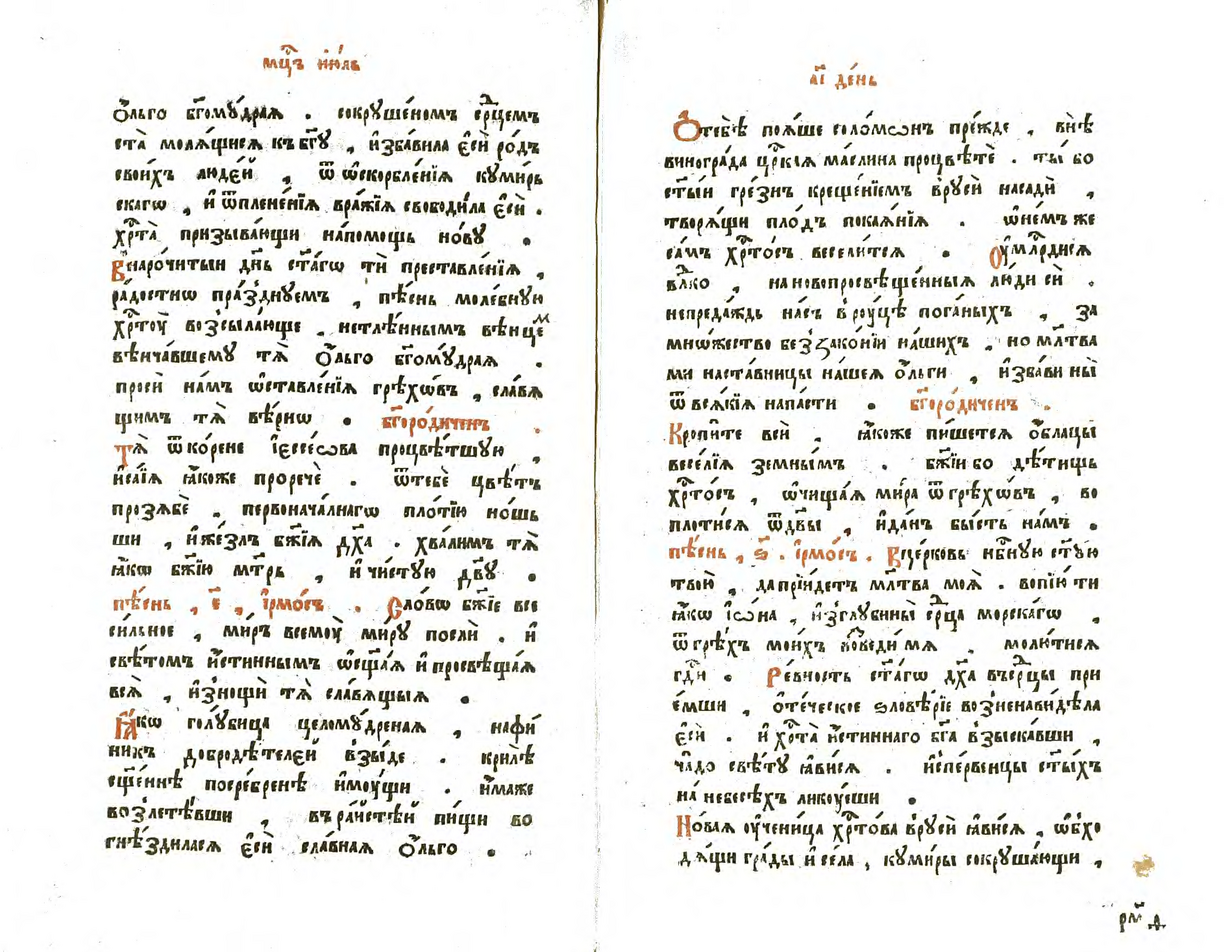 мц҃ъ ию́ль
Ѻ҆́льго бг҃ому́драѧ . сокруше́номъ ср҃дцемъ
ста̀ молѧ́щисѧ къ бг҃ꙋ , и҆зба́вила є҆сѝ ро́дъ
свои́хъ люде́й , ѿ ѡ҆скорбле́нїѧ кꙋми́рь
скагѡ , и҆ ѿплене́нїѧ вра́жїѧ свободи́ла є҆сѝ .
хрⷭ҇та̀ призыва́ющи напо́мощь но́вꙋ .
В наро́читыи дн҃ь ст҃а́гѡ тѝ преставле́нїѧ ,
ра́достнѡ пра́зднуемъ , пѣ́снь моле́бную
хрⷭ҇тоу̀ возсыла́юще . нетлѣ́ннымъ вѣнцеⷨ
вѣнча́вшемꙋ тѧ̀ Ѻ҆́льго бг҃ому́драѧ .
просѝ на́мъ ѡ҆ставле́нїѧ грѣхѡ́въ , сла́вѧ
щимъ тѧ̀ вѣ́рнѡ . бг҃оро́диченъ .
Тѧ̀ ѿ ко́рене і҆ессе́ѡва процвѣ́тшую ,
и҆са́їѧ ꙗ҆́коже проречѐ . ѿтебѐ цвѣ́тъ
прозѧбѐ , первонача́лнагѡ пло́тїю но́шь
ши , и҆же́злъ бж҃їѧ дх҃а . хва́лимъ тѧ̀
ꙗ҆́кѡ бж҃їю мт҃рь , и҆ чи́стую дв҃ꙋ .
пѣ́снь , є҃ , і҆рмо́съ . Сло́вѡ бж҃їе все
си́льное , ми́ръ всемоу̀ ми́рꙋ послѝ . и҆
свѣ́томъ и҆́стиннымъ ѡ҆сщаѧ и҆ просвѣща́ѧ
всѧ̀ , и҆знощѝ тѧ̀ сла́вѧщыѧ .
Ꙗ҆́кѡ голу́бица целому́дренаѧ , нафи́
никъ добродѣ́телей взы́де . крилѣ̀
сщ҃е́ннѣ посре́бренѣ и҆моу́щи . и҆́маже
возлетѣ́вши , въ ра́йстѣй пи́щи во
гнѣ́здиласѧ є҆сѝ сла́внаѧ Ѻ҆́льго .
а҃і де́нь
Ѻ҆тебѣ̀ поѧ́ше соломѡ́нъ пре́жде , внѣ̀
виногра́да цр҃кїѧ ма́слина процвѣтѐ . ты̀ бо
ст҃ы́и гре́знъ креще́нїемъ врусѝ насадѝ ,
творѧ́щи пло́дъ покаѧ́нїѧ . ѡ҆не́мъ же
са́мъ хрⷭ҇то́съ весели́тсѧ . Оу҆млⷭ҇рдисѧ
влⷣко , на новопросвѣще́нныѧ лю́ди сѝ .
непреда́ждь на́съ в роу́цѣ пога́ныхъ , за
мно́жество беззако́нїи на́шихъ . но мл҃тва
ми наста́вницы на́шеѧ Ѻ҆́льги , и҆зба́ви ны̀
ѿ всѧ́кїѧ напа́сти . бг҃оро́диченъ .
Кропи́те всѝ , ꙗ҆́коже пи́шетсѧ о҆́блацы
весе́лїѧ земны́мъ . бж҃їи бо дѣ́тищь
хрⷭ҇то́съ , ѡ҆чища́ѧ ми́ра ѿ грѣхѡ́въ , во
плоти́сѧ ѿ дв҃ы , и҆да́нъ бы́сть на́мъ .
пѣ́снь , ѕ҃ . і҆рмо́съ . Вце́рковь нбⷭ҇ную ст҃ую
твою̀ , да прїи́детъ мл҃тва моѧ̀ . вопїю́ ти
ꙗ҆́кѡ і҆ѡ́на , и҆зглубины̀ ср҃дца морска́гѡ ,
ѿ грѣ́хъ мои́хъ возведи́ мѧ . молю́тисѧ
гдⷭ҇и . Ре́вность ст҃а́гѡ дх҃а въ ср҃дцы при
е́мши , ѻ҆те́ческое ѕловѣ́рїе возненави́дѣла
є҆сѝ . и҆ хрⷭ҇та̀ и҆́стиннаго бг҃а взыска́вши ,
ча́до свѣ́тꙋ ꙗ҆ви́сѧ . и҆сперве́нцы ст҃ы́хъ
на небесѣ́хъ лику́еши .
Но́ваѧ оу҆чени́ца хрⷭ҇то́ва врусѝ ꙗ҆ви́сѧ , ѡ҆бхо
дѧ́щи гра́ды и҆ се́ла , кꙋми́ры сокруша́ющи ,